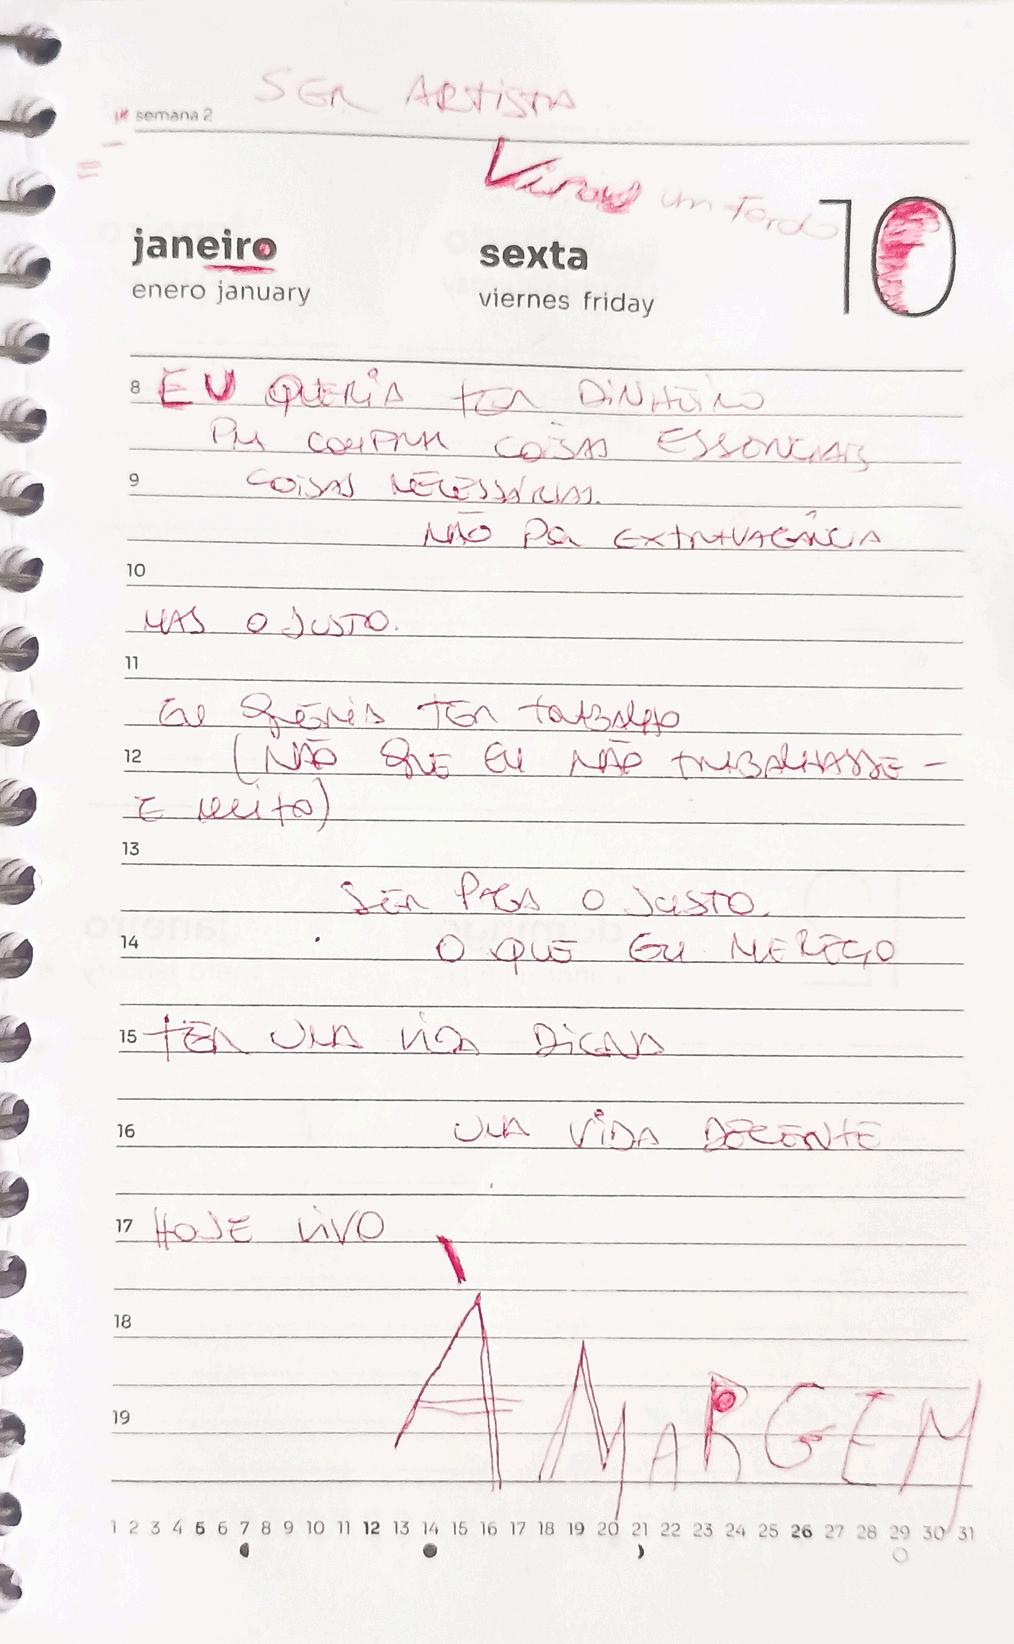 SER ARTISTA
semana 2
=
Virou um Fardo
janeiro sexta 10
enero january viernes friday
8 EU QUERIA TER DINHEIRO
PRA COMPRAR COISAS ESSENCIAIS
9 COISAS NECESSÁRIAS.
NÃO POR EXTRAVAGÂNCIA
10
MAS O JUSTO.
11
EU QUERIA TER TRABALHO
12 (NÃO QUE EU NÃO TRABALHASSE -
E MUITO)
13
SER PAGA O JUSTO.
14 O QUE EU MEREÇO
15 TER UMA VIDA DIGNA
16 UMA VIDA DECENTE
17 HOJE VIVO
18
À MARGEM
19
1 2 3 4 5 6 7 8 9 10 11 12 13 14 15 16 17 18 19 20 21 22 23 24 25 26 27 28 29 30 31